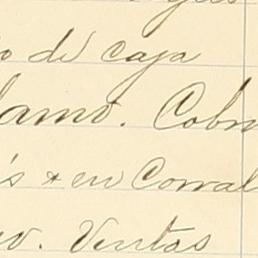 de caja
lamo. Cobr
s & en Corral
o. Ventas